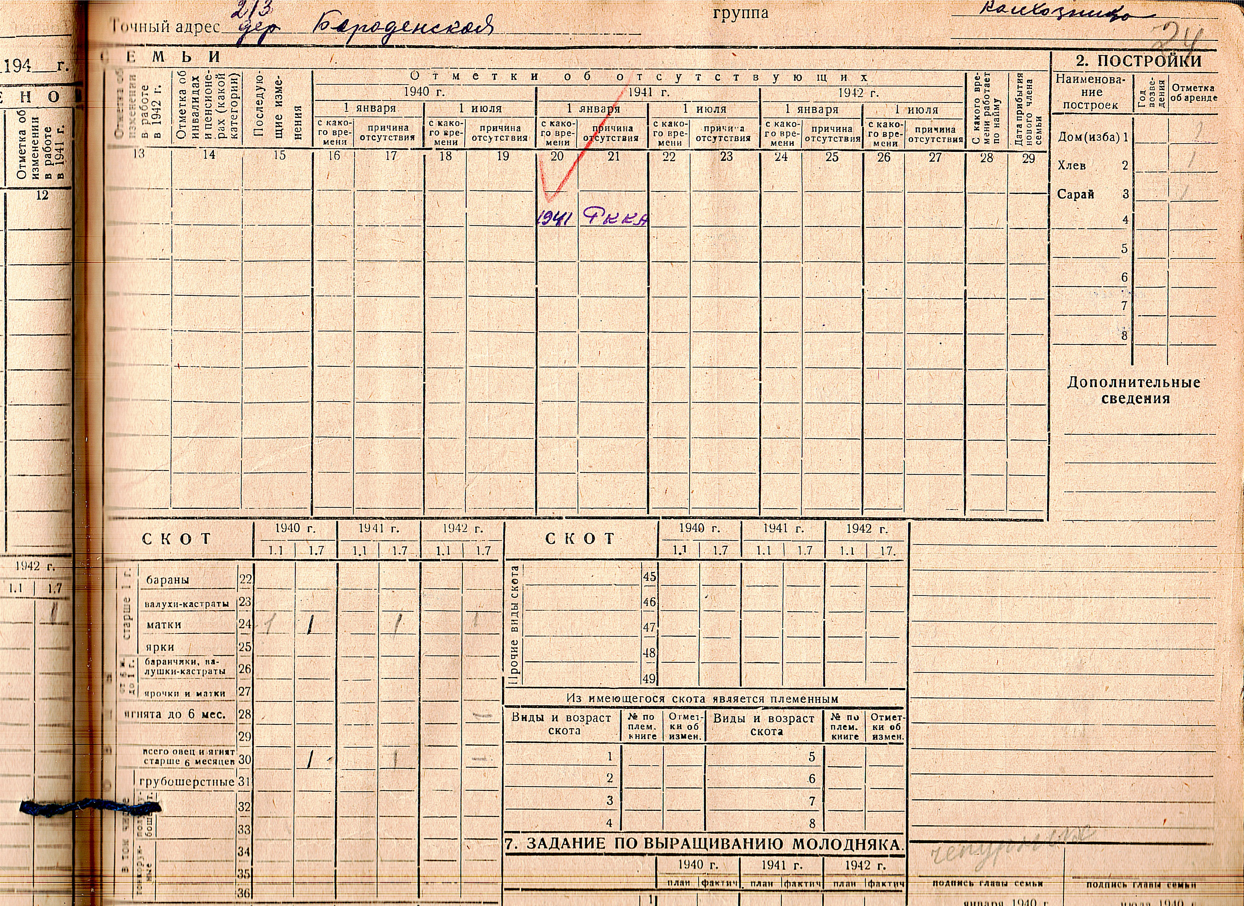 213
Точный адрес дер Бароденской группа колхозники
24
194 г.
ЕНО
СЕМЬИ
Отметка об изменении в работе в 1941 г.
12
Отметка об изменении в работе в 1942 г.
Отметка об инвалидах и пенсионерах (какой категории)
Последующие изменения
Отметки об отсутствующих
1940 г. 1941 г. 1942 г.
1 января 1 июля 1 января 1 июля 1 января 1 июля
с какого времени причина отсутствия с какого времени причина отсутствия с какого времени причина отсутствия с какого времени причина отсутствия с какого времени причина отсутствия с какого времени причина отсутствия
С какого времени работает по найму
Дата прибытия нового члена семьи
13 14 15 16 17 18 19 20 21 22 23 24 25 26 27 28 29
1941 РККА
2. ПОСТРОЙКИ
Наименование построек Год возведения Отметка об аренде
Дом (изба) 1
Хлев 2 1
Сарай 3 1
4
5
6
7
8
Дополнительные
сведения
1942 г.
1.1 1.7
1
СКОТ 1940 г. 1941 г. 1942 г.
1.1 1.7 1.1 1.7 1.1 1.7
старше 1 г.
бараны 22
валухи-кастраты 23
матки 24 1 1 1 1
ярки 25
от 6 м. до 1 г.
баранчики, валушки-кастраты 26
ярочки и матки 27
ягнята до 6 мес. 28 —
29
всего овец и ягнят старше 6 месяцев 30 1 1
в том числе
грубошерстные 31
32
33
34
35
36
СКОТ 1940 г. 1941 г. 1942 г.
1.1 1.7 1.1 1.7 1.1 17.
Прочие виды скота
45
46
47
48
49
Из имеющегося скота является племенным
Виды и возраст скота № по плем. книге Отметки об измен. Виды и возраст скота № по плем. книге Отметки об измен.
1 5
2 6
3 7
4 8
7. ЗАДАНИЕ ПО ВЫРАЩИВАНИЮ МОЛОДНЯКА.
1940 г. 1941 г. 1942 г.
план фактич план фактич план фактич
1
подпись главы семьи подпись главы семьи
января 1940 г. июля 1940 г.